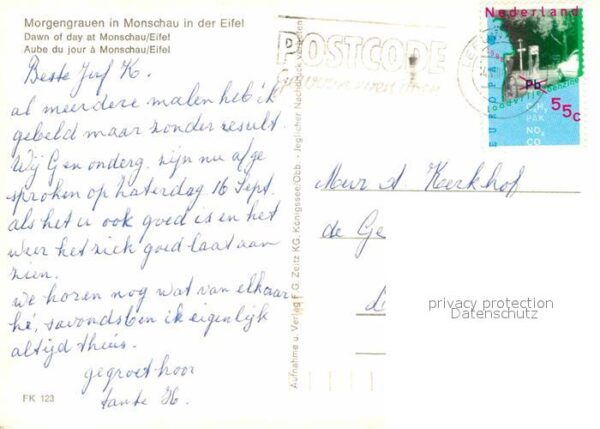 Morgengrauen in Monschau in der Eifel
Dawn of day at Monschau/Eifel
Aube du jour à Monschau/Eifel
Beste Juf K.
al meerdere malen heb ik
gebeld maar zonder result.
Wij Gen onderg. zijn nu afge
sproken op Zaterdag 16 Sept.
als het u ook goed is en het
weer het ziek goed laat aan
zien.
we horen nog wat van elkaar
hé, savonds ben ik eigenlijk
altijd thuis.
gegroet hoor
tante H.
FK 123
Aufnahme u. Verlag F. G. Zeitz KG, Königssee/Obb. · Jeglicher Nachdruck verboten
POSTCODE
Nederland
EUROPA
Pb
loodvrije benzine
55c
CₓHᵧ
PAK
NOₓ
CO
Kerkhof
de Ge
privacy protection
Datenschutz